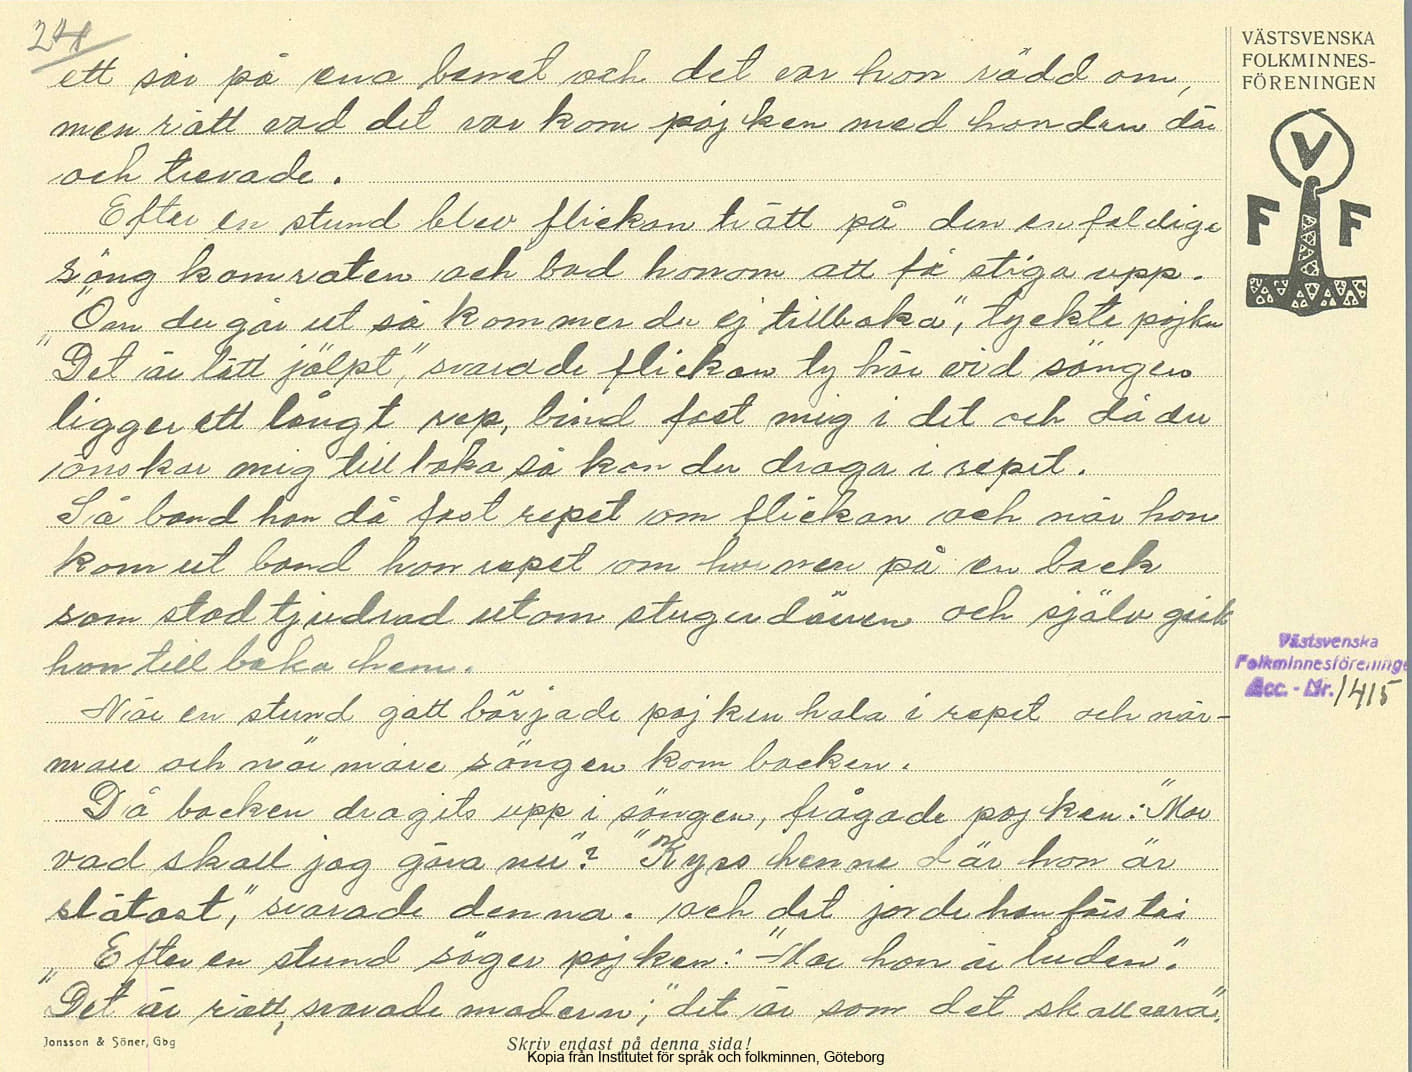 24
VÄSTSVENSKA
FOLKMINNES-
FÖRENINGEN
V
F F
ett sår på ena benet och det var hon rädd om,
men rätt vad det var kom pojken med handen där
och trevade.
Efter en stund blev flickan trött på den enfaldige
sängkamraten och bad honom att få stiga upp.
"Om du går ut så kommer du ej tillbaka", tyckte pojken
"Det är lätt jälpt", svarade flickan ty här vid sängen
ligger ett långt rep, bind fast mig i det och då du
önskar mig tillbaka så kan du draga i repet.
Så band han då fast repet om flickan och när hon
kom ut band hon repet om hornen på en bock
som stod tjudrad utom stugudörren och själv gick
hon tillbaka hem.
När en stund gått började pojken hala i repet och när-
mare och närmare sängen kom bocken.
Då bocken dragits upp i sängen, frågade pojken: "Mor
vad skall jag göra nu"? "Kyss henne där hon är
slätast", svarade denna. och det jorde han förstås
Efter en stund säger pojken: "Mor hon är luden".
"Det är rätt, svarade modern; "det är som det skall vara".
Västsvenska
Folkminnesföreninge
Acc. - Nr. 1415
Jonsson & Söner, Gbg
Skriv endast på denna sida!
Kopia från Institutet för språk och folkminnen, Göteborg